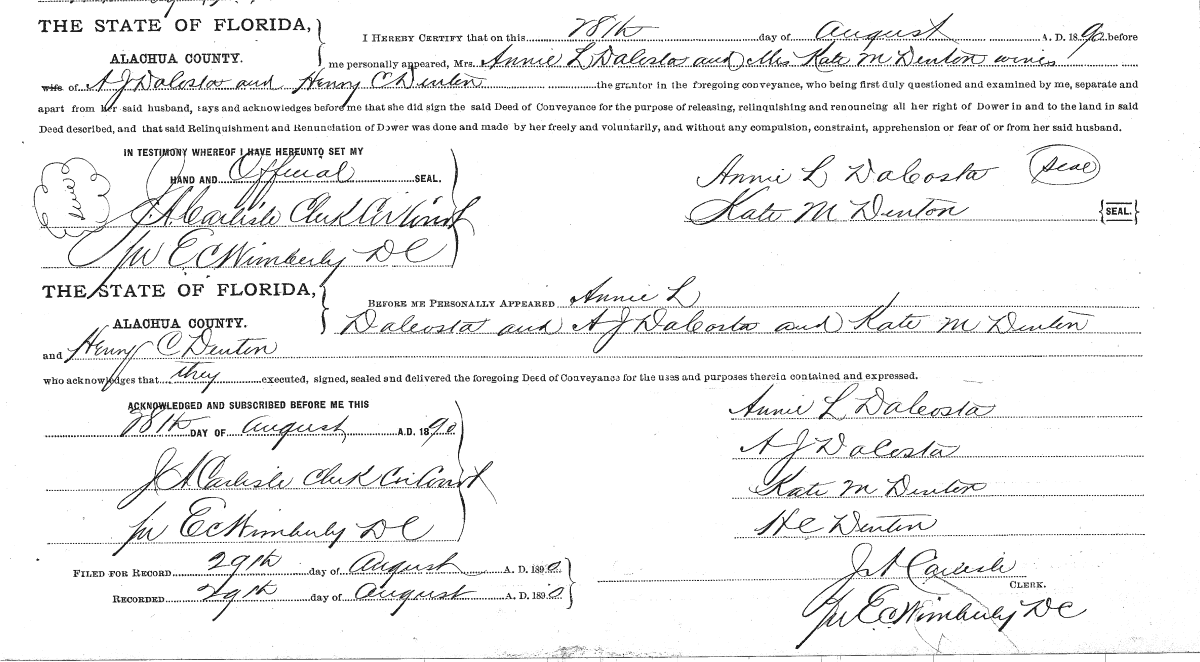 THE STATE OF FLORIDA,
I HEREBY CERTIFY that on this 28th day of August A. D. 1890 before
ALACHUA COUNTY.
me personally appeared, Mrs. Annie L DaCosta and Mrs Kate M Denton wives
wife of A J DaCosta and Henry C Denton the grantor in the foregoing conveyance, who being first duly questioned and examined by me, separate and
apart from her said husband, says and acknowledges before me that she did sign the said Deed of Conveyance for the purpose of releasing, relinquishing and renouncing all her right of Dower in and to the land in said
Deed described, and that said Relinquishment and Renunciation of Dower was done and made by her freely and voluntarily, and without any compulsion, constraint, apprehension or fear of or from her said husband.
IN TESTIMONY WHEREOF I HAVE HEREUNTO SET MY
HAND AND Official SEAL.
Seal
J. A. Carlisle Clerk Cir Court
pr E C Wimberly DC
Annie L DaCosta Seal
Kate M Denton {SEAL.}
THE STATE OF FLORIDA,
BEFORE ME PERSONALLY APPEARED Annie L
ALACHUA COUNTY.
DaCosta and A J DaCosta and Kate M Denton
and Henry C Denton
who acknowledges that they executed, signed, sealed and delivered the foregoing Deed of Conveyance for the uses and purposes therein contained and expressed.
ACKNOWLEDGED AND SUBSCRIBED BEFORE ME THIS
28th DAY OF August A.D. 1890
J A Carlisle Clerk Cir Court
pr E C Wimberly DC
Annie L DaCosta
A J DaCosta
Kate M Denton
H C Denton
FILED FOR RECORD 29th day of August A. D. 1890
RECORDED 29th day of August A. D. 1890
J A Carlisle
CLERK.
pr E C Wimberly DC